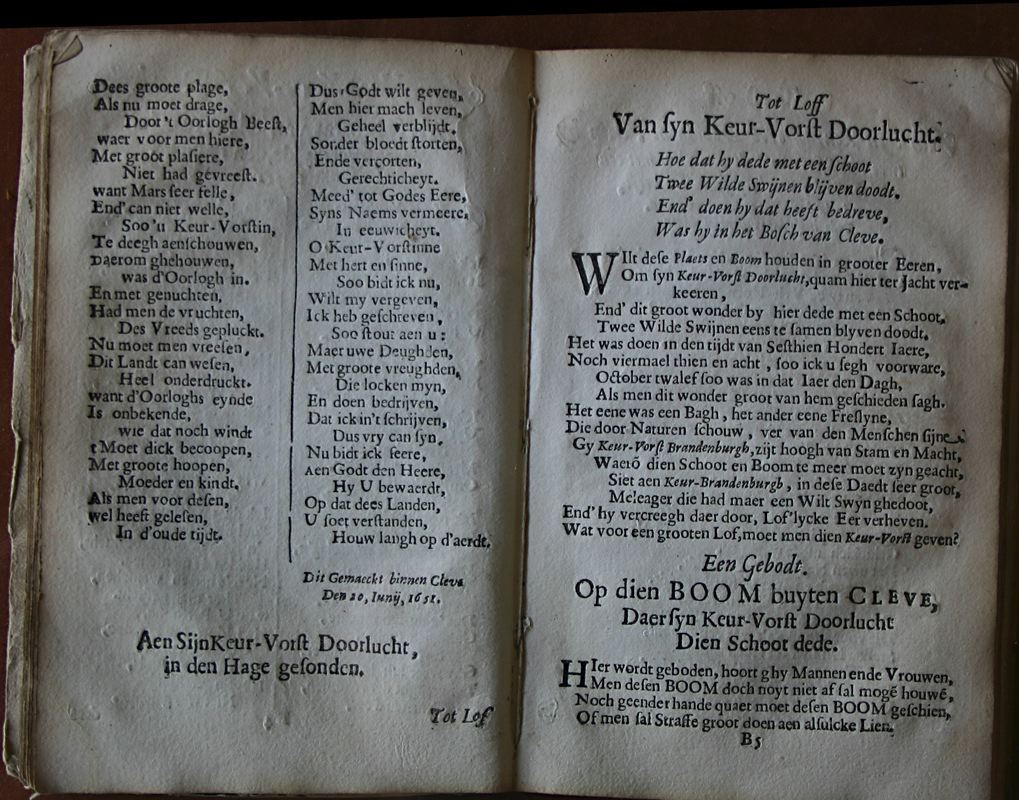 Dees groote plage,
Als nu moet drage,
Door 't Oorlogh Beest,
waer voor men hiere,
Met groot plasiere,
Niet had gevreest.
want Mars seer felle,
End' can niet welle,
Soo 'n Keur-Vorstin,
Te deegh aenschouwen,
Daerom ghehouwen,
was d'Oorlogh in.
En met genuchten,
Had men de vruchten,
Des Vreeds gepluckt.
Nu moet men vreesen,
Dit Landt can wesen,
Heel onderdruckt.
want d'Oorloghs eynde
Is onbekende,
wie dat noch windt
t Moet dick becoopen,
Met groote hoopen,
Moeder en kindt.
Als men voor desen,
wel heeft gelesen,
In d'oude tijdt.
Dus Godt wilt geven,
Men hier mach leven,
Geheel verblijdt.
Sonder bloedt storten,
Ende vercorten,
Gerechticheyt.
Meed' tot Godes Eere,
Syns Naems vermeere,
In eeuwicheyt.
O Keur-Vorstinne
Met hert en sinne,
Soo bidt ick nu,
Wilt my vergeven,
Ick heb geschreven,
Soo stout aen u:
Maer uwe Deughden,
Met groote vreughden,
Die locken myn,
En doen bedrijven,
Dat ick in't schrijven,
Dus vry can syn,
Nu bidt ick seere,
Aen Godt den Heere,
Hy U bewaerdt,
Op dat dees Landen,
U soet verstanden,
Houw langh op d'aerdt.
Dit Gemaeckt binnen Cleve
Den 20, Iunij, 1651.
Aen Sijn Keur-Vorst Doorlucht,
in den Hage gesonden.
Tot Lof
Tot Loff
Van syn Keur-Vorst Doorlucht.
Hoe dat hy dede met een schoot
Twee Wilde Swijnen blijven doodt.
End' doen hy dat heeft bedreve,
Was hy in het Bosch van Cleve.
WIlt dese Plaets en Boom houden in grooter Eeren,
Om syn Keur-Vorst Doorlucht, quam hier ter Jacht ver-
keeren,
End' dit groot wonder by hier dede met een Schoot,
Twee Wilde Swijnen eens te samen blyven doodt.
Het was doen in den tijdt van Sesthien Hondert Iaere,
Noch viermael thien en acht, soo ick u segh voorware,
October twalef soo was in dat Iaer den Dagh,
Als men dit wonder groot van hem geschieden sagh.
Het eene was een Bagh, het ander eene Freslyne,
Die door Naturen schouw, ver van den Menschen sijne
Gy Keur-Vorst Brandenburgh, zijt hoogh van Stam en Macht,
Waerō dien Schoot en Boom te meer moet zyn geacht,
Siet aen Keur-Brandenburgh, in dese Daedt seer groot,
Meleager die had maer een Wilt Swyn ghedoot,
End' hy vercreegh daer door, Lof'lycke Eer verheven.
Wat voor een grooten Lof, moet men dien Keur-Vorst geven?
Een Gebodt.
Op dien BOOM buyten CLEVE,
Daer syn Keur-Vorst Doorlucht
Dien Schoot dede.
HIer wordt geboden, hoort ghy Mannen ende Vrouwen,
Men desen BOOM doch noyt niet af sal mogē houwē,
Noch geenderhande quaet moet desen BOOM geschien,
Of men sal Straffe groot doen aen alsulcke Lien.
B5